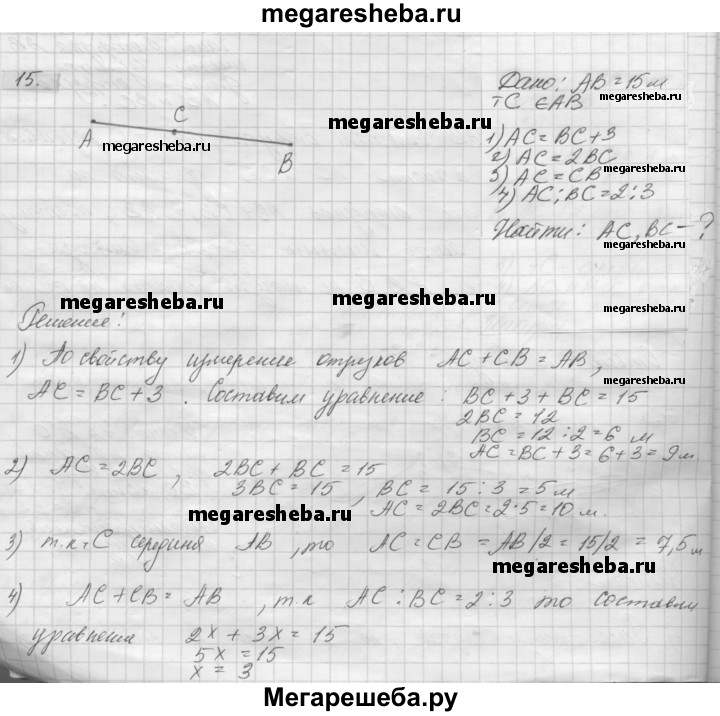 megaresheba.ru
15.
Дано: AB = 15 м
тС ∈ AB
megaresheba.ru
C
A
B
megaresheba.ru
megaresheba.ru
1) AC = BC + 3
2) AC = 2BC
3) AC = CB
megaresheba.ru
4) AC : BC = 2 : 3
Найти: AC, BC - ?
megaresheba.ru
megaresheba.ru
megaresheba.ru
Решение:
1) По свойству измерение отрезков AC + CB = AB,
megaresheba.ru
AC = BC + 3. Составим уравнение: BC + 3 + BC = 15
2BC = 12
BC = 12 : 2 = 6 м
megaresheba.ru
AC = BC + 3 = 6 + 3 = 9 м
2) AC = 2BC, 2BC + BC = 15
3BC = 15, BC = 15 : 3 = 5 м
AC = 2BC = 2 · 5 = 10 м.
megaresheba.ru
3) т.к тС середина AB, то AC = CB = AB/2 = 15/2 = 7,5 м
megaresheba.ru
4) AC + CB = AB, т.к AC : BC = 2 : 3 то составим
уравнения 2x + 3x = 15
5x = 15
x = 3
Мегарешеба.ру